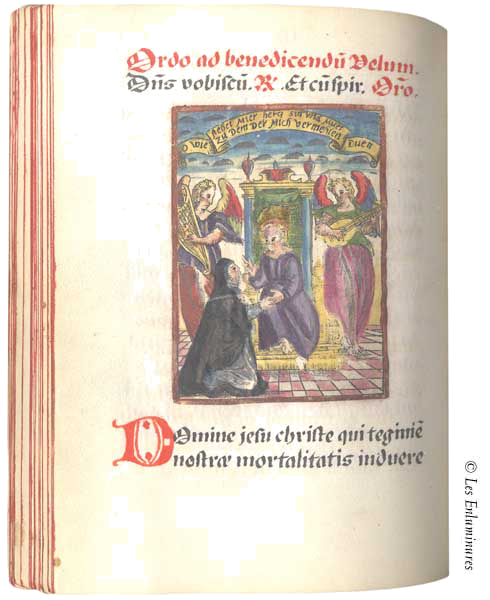 Ordo ad benedicendū Velum.
Dūs vobiscū. ℟. Et cū spir. Orō.
O wie
zu Dem Der Mich vermeyen
Duen
Domine jesu christe qui tegimē
nostræ mortalitatis induere
© Les Enluminures